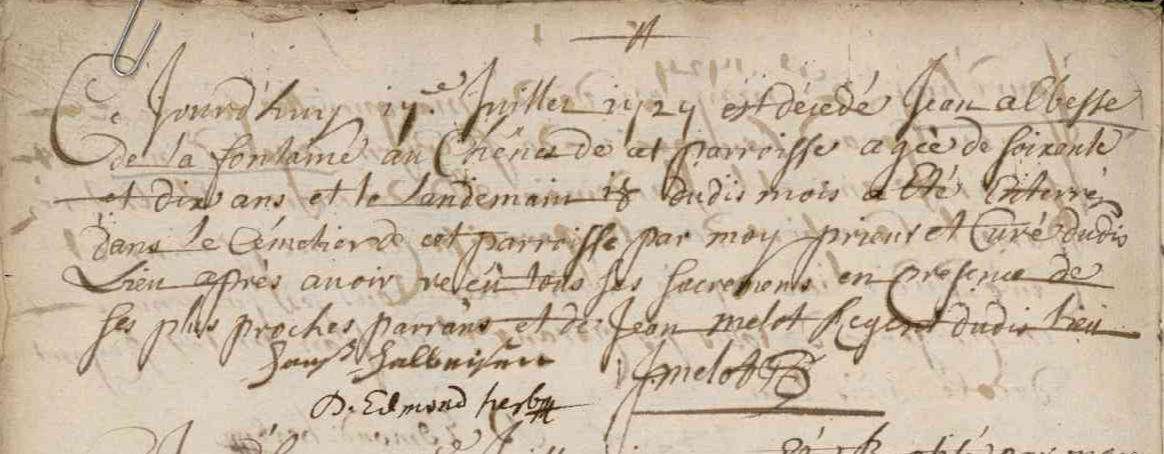 Ce Jourd'huy 17.e Juillet 1724 est décédé Jean albesse
de la fontaine au Chênes de cet parroisse agée de soixente
et dix ans et le Landemain 18 dudis mois a été Enterrés
dans Le Cémetier de cet parroisse par moy prieur et Curé dudis
Lieu après avoir reçeû tous ses sacremens en presence de
ses plus proches parrans et de Jean melot Regent dudis lieu
Jmelot
D. Edmond